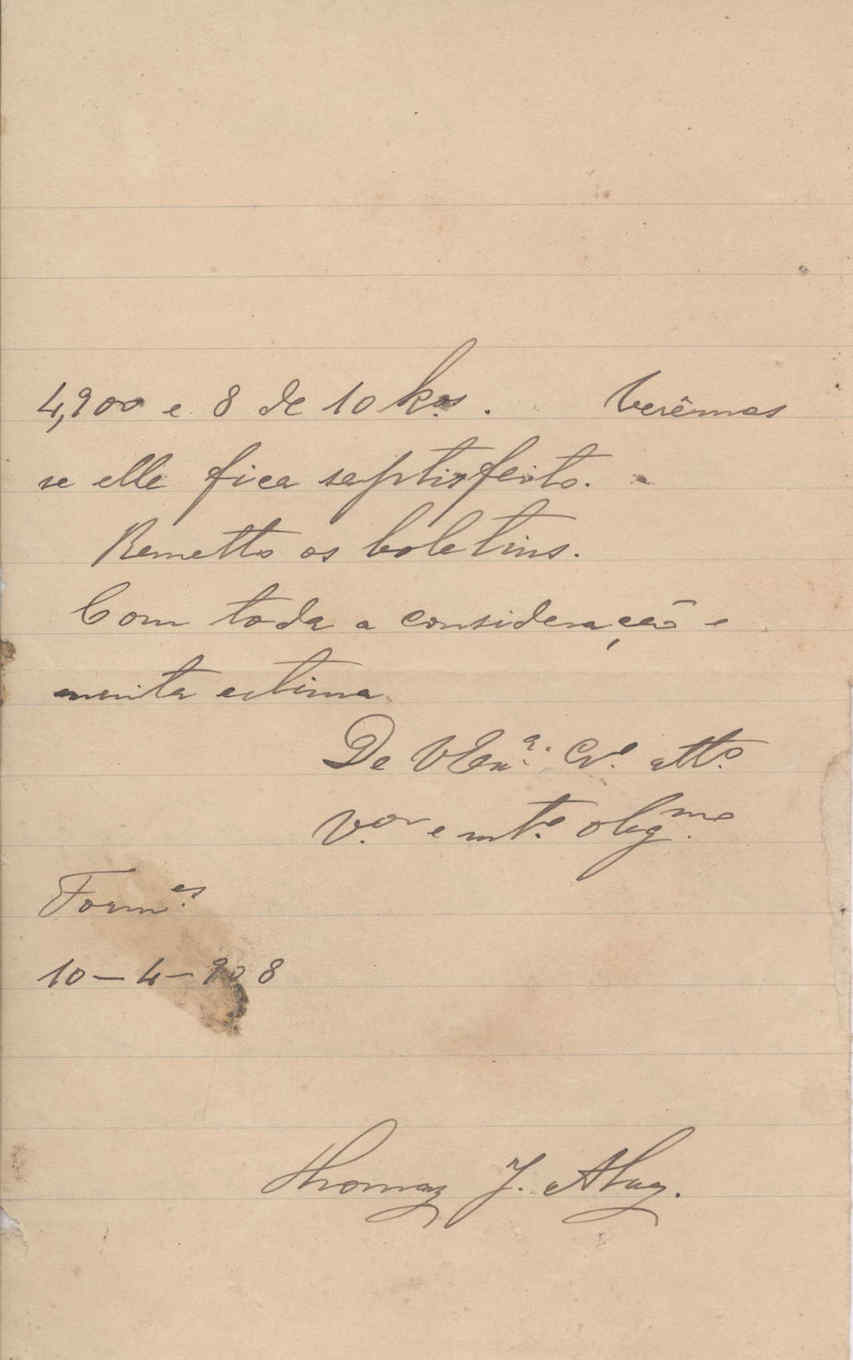 4,900 e 8 de 10 kos. Verêmos
se elle fica saptisfeito.
Remetto os boletins.
Com toda a consideração e
muita estima
De V Exª. Crº. attº.
V.or e mtº. obigmo.
Form.es
10-4-908
Thomaz J.